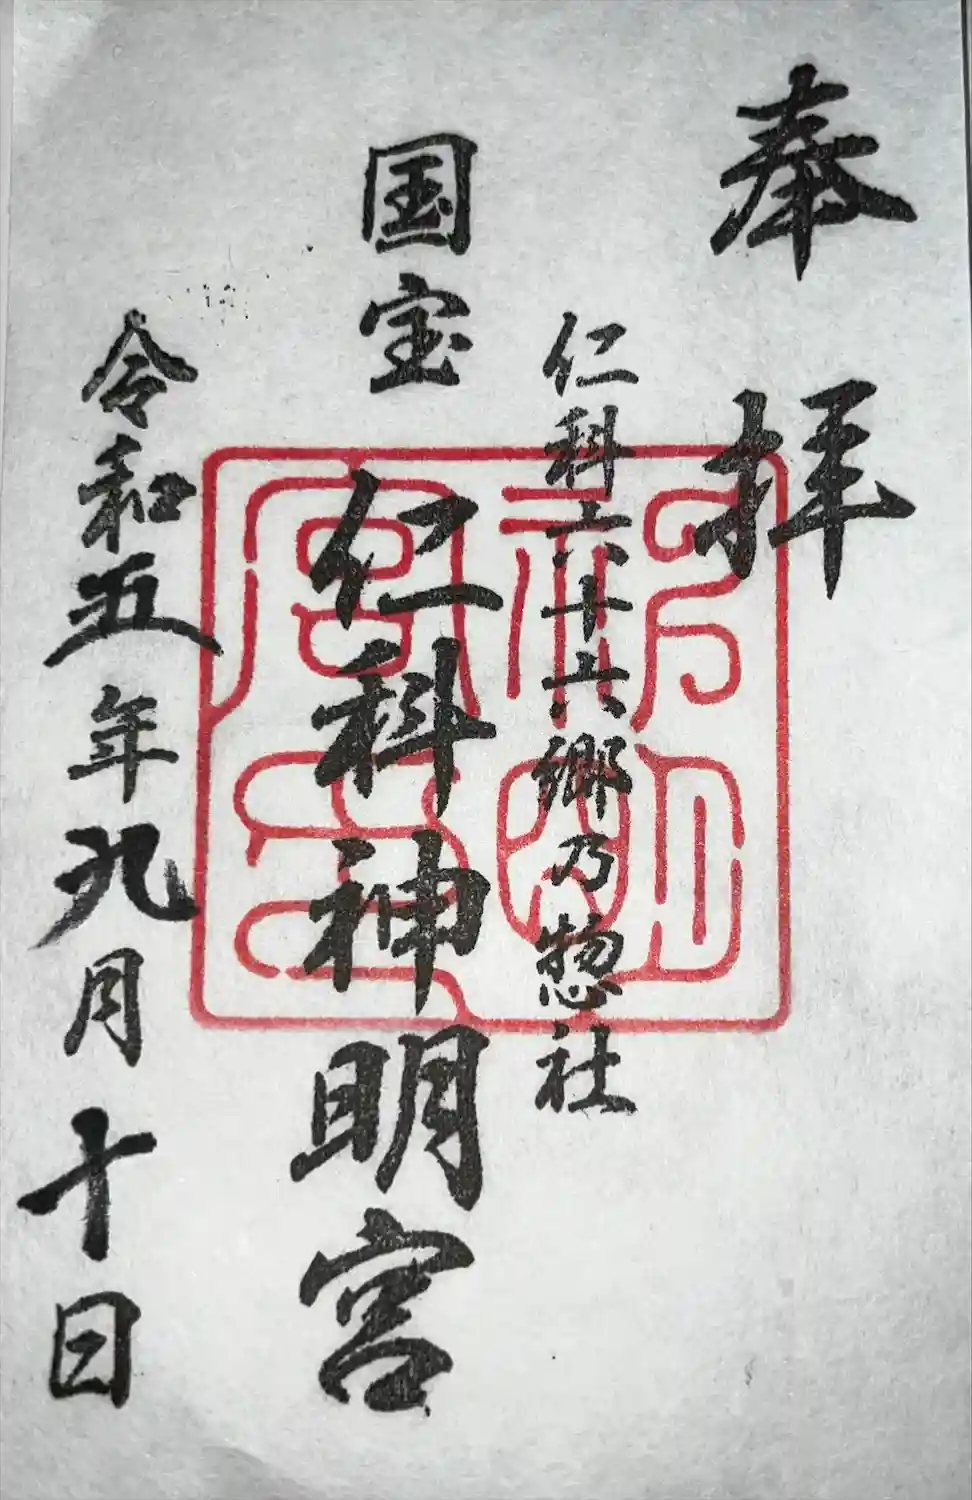 奉拝
仁科六十六郷乃惣社
国宝
仁科神明宮
令和五年九月十日